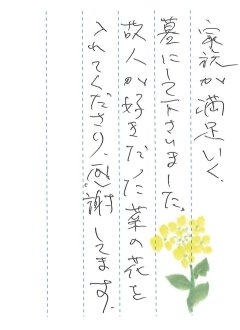 家族が満足いく、
墓にして下さいました。
故人が好きだった菜の花を
入れてくださり、感謝してます。